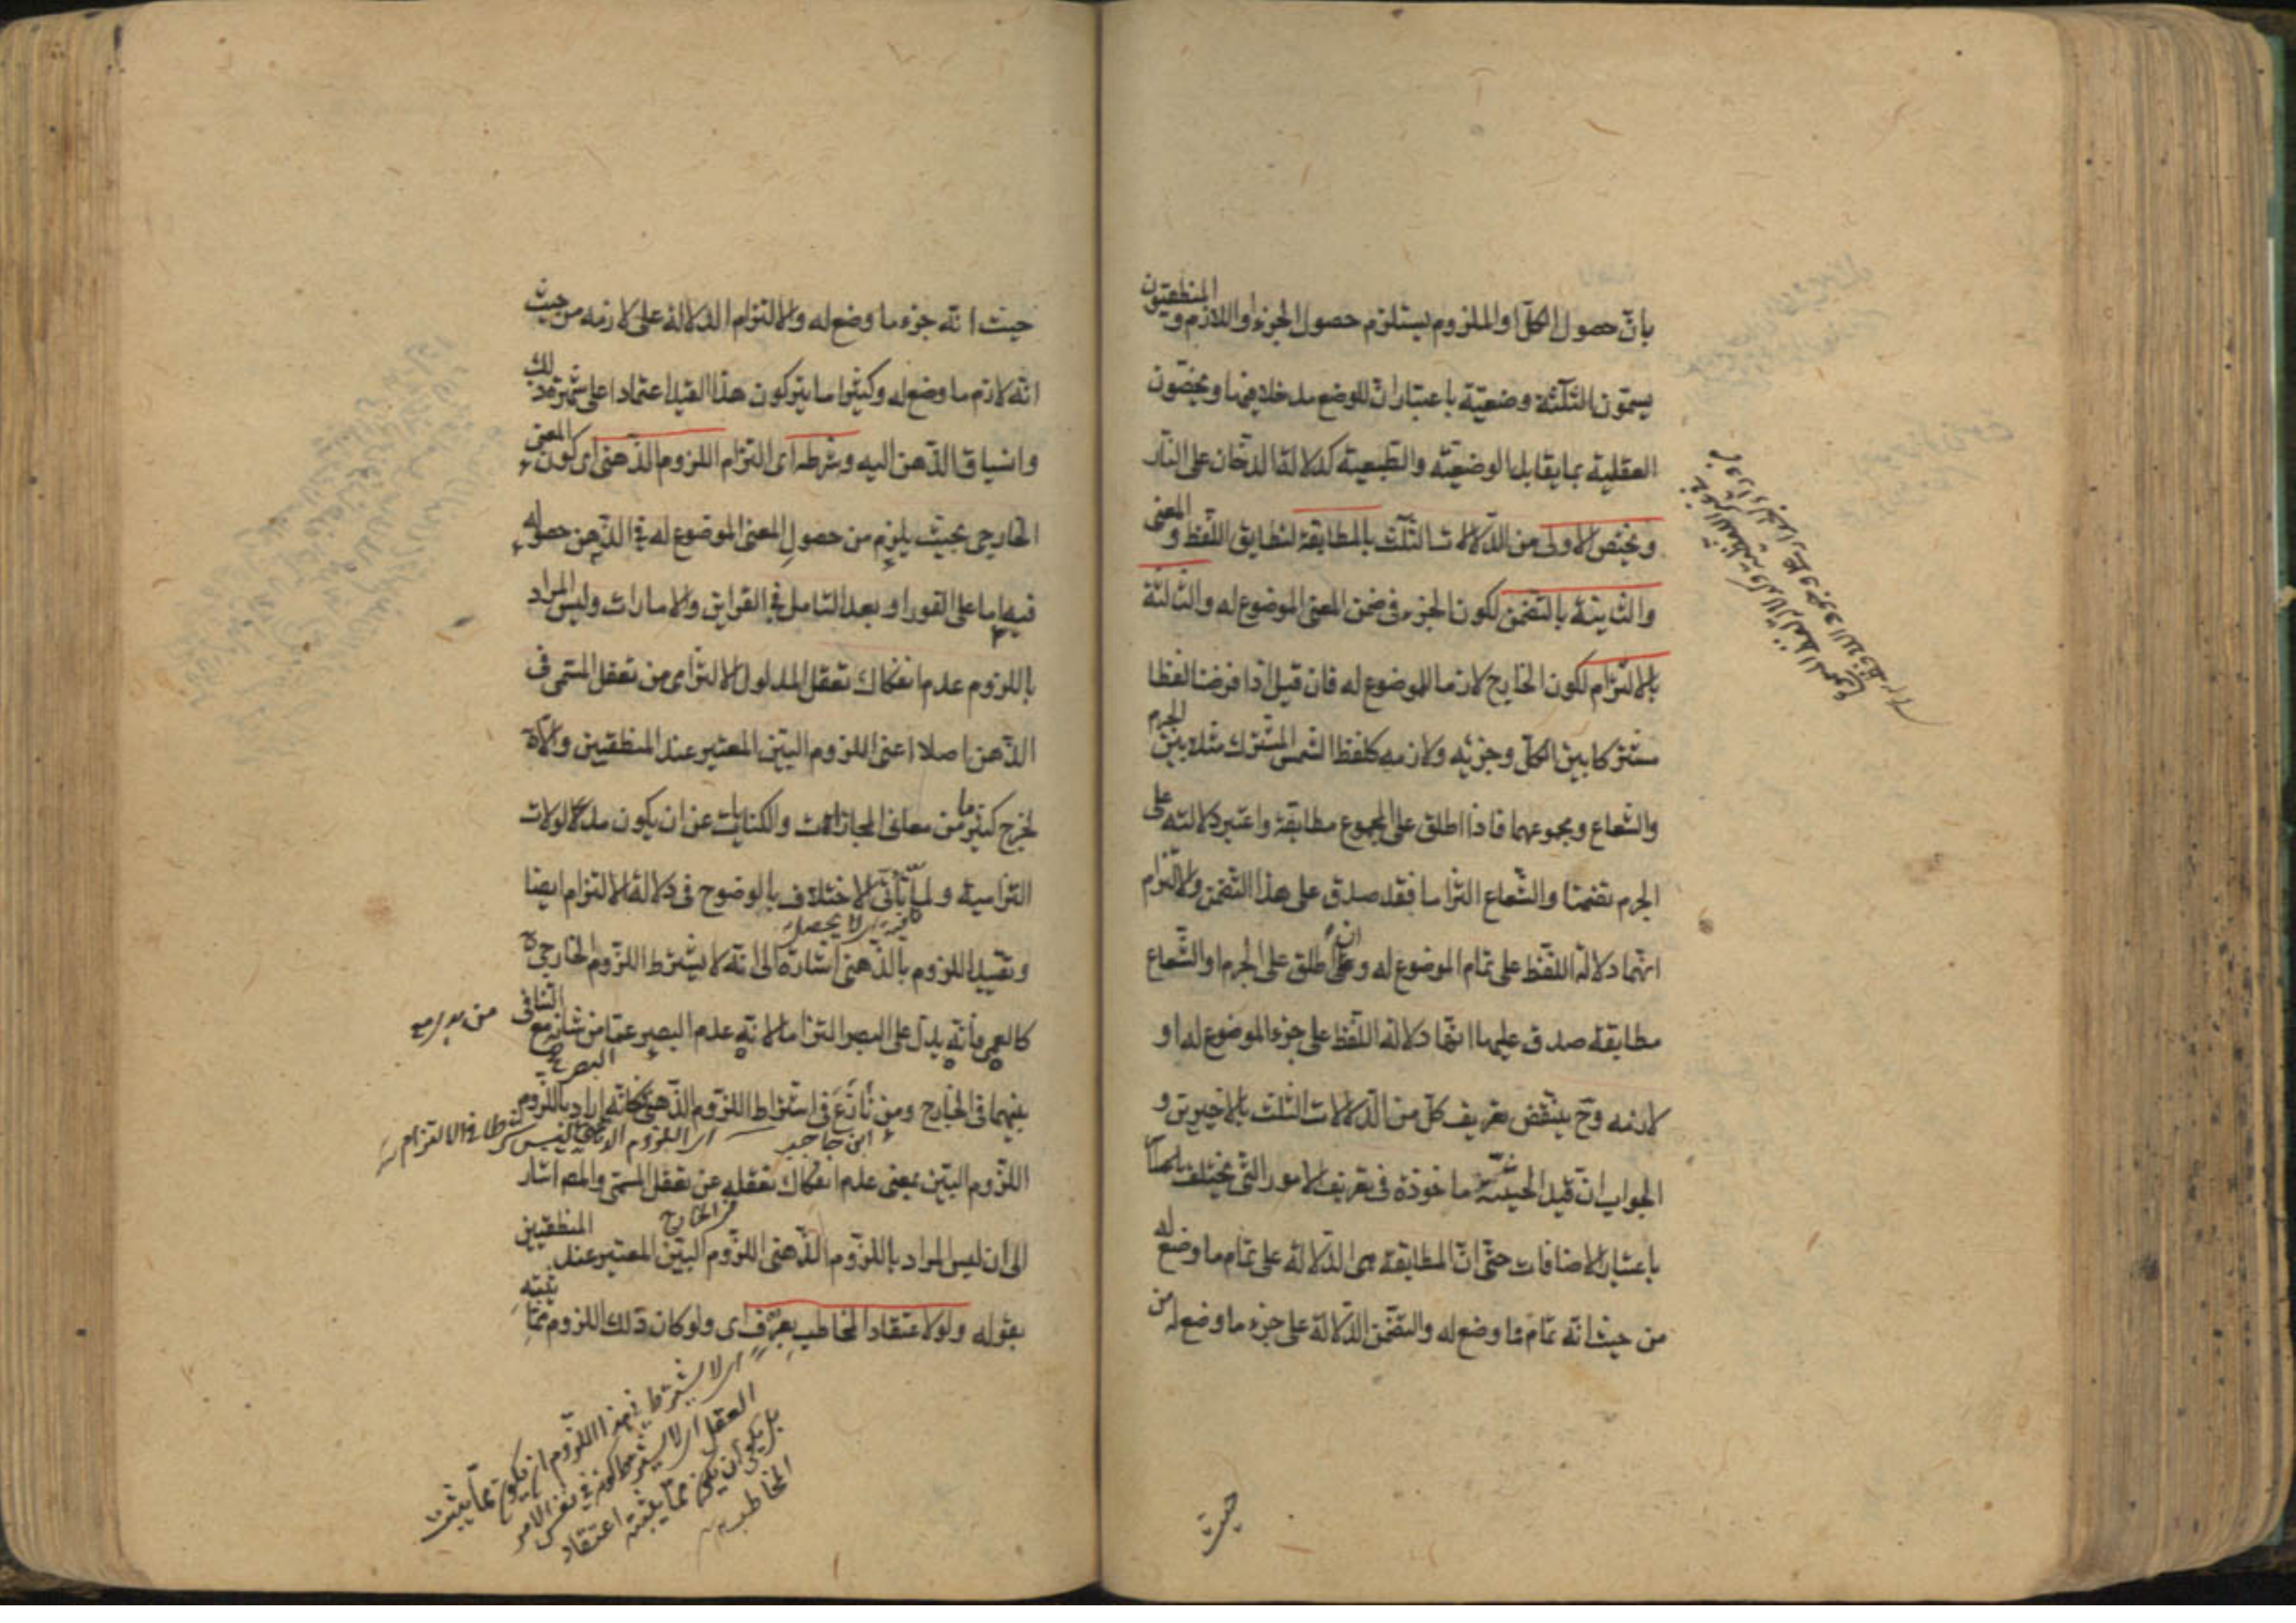 بان حصول الكل او الملزوم يستلزم حصول الجزء او اللازم و المنطقيون
يسمون الثلثة وضعية باعتبار ان للوضع مدخلا فيها ويخصون
العقلية بما يقابل الوضعية والطبيعية كدلالة الدخان على النار
ويختص الاولى من الدلالات الثلث بالمطابقة لتطابق اللفظ و المعنى
والثانية بالتضمن لكون الجزء في ضمن المعنى الموضوع له والثالثة
بالالتزام لكون الخارج لازما للموضوع له فان قيل اذا فرضنا لفظا
مشتركا بين الكل وجزئه ولازمه كلفظ الشمس المشترك مثلا بين الجرم
والشعاع ومجموعهما فاذا اطلق على المجموع مطابقة واعتبر دلالته على
الجرم تضمنا والشعاع التزاما فقد صدق على هذا التضمن والالتزام
انهما دلالة اللفظ على تمام الموضوع له و ان اطلق على الجرم او الشعاع
مطابقة صدق عليهما انها دلالة اللفظ على جزء الموضوع له او
لازمه وح ينتقض تعريف كل من الدلالات الثلث بالاخيرين و
الجواب ان قيد الحيثية ماخوذة في تعريف الامور التي تختلف
باعتبار الاضافات حتى ان المطابقة هي الدلالة على تمام ما وضع له
من حيث انه تمام ما وضع له والتضمن الدلالة على جزء ما وضع له من
حيث
حيث انه جزء ما وضع له والالتزام الدلالة على لازمه من حيث
انه لازم ما وضع له وكثيرا ما يتركون هذا القيد اعتمادا على شهرة ذلك
وانسياق الذهن اليه وشرطه اى التزام اللزوم الذهنى اى كون المعنى
الخارجى بحيث يلزم من حصول المعنى الموضوع له في الذهن حصوله
فيه اما على الفور او بعد التامل في القراين والامارات وليس المراد
باللزوم عدم انفكاك تعقل المدلول الالتزامى من تعقل المسمى فى
الذهن اصلا اعنى اللزوم البين المعتبر عند المنطقيين والا
لخرج كثير ما من معانى المجازات والكنايات عن ان يكون مدلولات
التزامية ولما تأتى الاختلاف بالوضوح فى دلالة الالتزام ايضا
اى لا يحصل
وتقييد اللزوم بالذهنى اشارة الى انه لا يشترط اللزوم الخارجى
كالعمى فانه يدل على البصر التزاما لانه عدم البصر عما من شانه مع التنافى
البصر
بينهما فى الخارج ومن نازع فى اشتراط اللزوم الذهنى فكانه اراد باللزوم
ابن حاجب
اى اللزوم الذهنى ليس شرطا فى الالتزام
اللزوم البين بمعنى عدم انفكاك تعقله عن تعقل المسمى والمص اشار
الى ان ليس المراد باللزوم الذهنى اللزوم البين المعتبر عند المنطقيين
بقوله ولو لاعتقاد المخاطب بعرف اى ولو كان ذلك اللزوم مما يثبته
اى لا يشترط فى هذا اللزوم ان يكون مما يثبته
العقل اى لا يشترط كونه فى نفس الامر
بل يكفى ان يكون مما يثبته اعتقاد
المخاطب